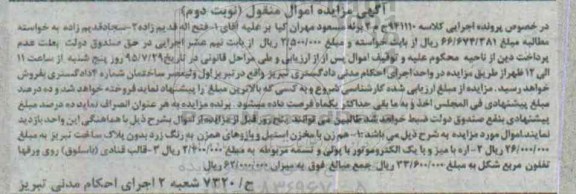 آگهی مزایده اموال منقول (نوبت دوم)
در خصوص پرونده اجرایی کلاسه ۹۴۱۱۱۰ ج ۲ له مسعود مهران کیا بر علیه آقای ۱- فتح اله قدیم زاده ۲- سجاد قدیم زاده به خواسته
مطالبه مبلغ ۶۶/۶۷۴/۳۸۱ ریال از بابت خواسته و مبلغ ۳/۵۰۰/۰۰۰ ریال از بابت نیم عشر اجرایی در حق صندوق دولت بعلت عدم
پرداخت دین از ناحیه محکوم علیه و توقیف اموال پس از ارزیابی و طی مراحل قانونی در تاریخ ۹۵/۷/۲۹ روز پنج شنبه از ساعت ۱۱
الی ۱۲ ظهر از طریق مزایده در واحد اجرای احکام مدنی دادگستری تبریز واقع در تبریز اول ولیعصر ساختمان شماره ۲ دادگستری بفروش
خواهد رسید. مزایده از مبلغ ارزیابی شده کارشناسی شروع و به کسی که بالاترین مبلغ را پیشنهاد نماید فروخته خواهد شد و ده درصد
مبلغ پیشنهادی فی المجلس اخذ و به ما بقی حداکثر یکماه فرصت داده میشود. برنده مزایده به هر عنوان انصراف نماید ده درصد مبلغ
پیشنهادی بنفع صندوق دولت ضبط خواهد شد طالبین می توانند پنج روز قبل از مزایده از اموال بشرح ذیل با هماهنگی این واحد بازدید
نمایند. اموال مورد مزایده به شرح ذیل می باشد: ۱- همزن با مخزن استیل و پاروهای همزن به رنگ زرد بدون پلاک ساخت تبریز به مبلغ
۲۶/۰۰۰/۰۰۰ ریال ۲- اره با میز و با یک الکتروموتور با پولی و تسمه مربوطه به مبلغ ۲/۴۰۰/۰۰۰ ریال ۳- قالب قنادی (باسلوق) روی ورقها
تفلون مربع شکل به مبلغ ۳۳/۶۰۰/۰۰۰ ریال جمع مبالغ فوق به میزان ۶۲/۰۰۰/۰۰۰ ریال
ح/ ۷۳۲۰ شعبه ۲ اجرای احکام مدنی تبریز